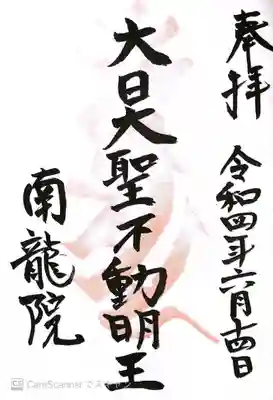 奉拝
令和四年六月十四日
大日大聖不動明王
南龍院
CS CamScanner でスキャン